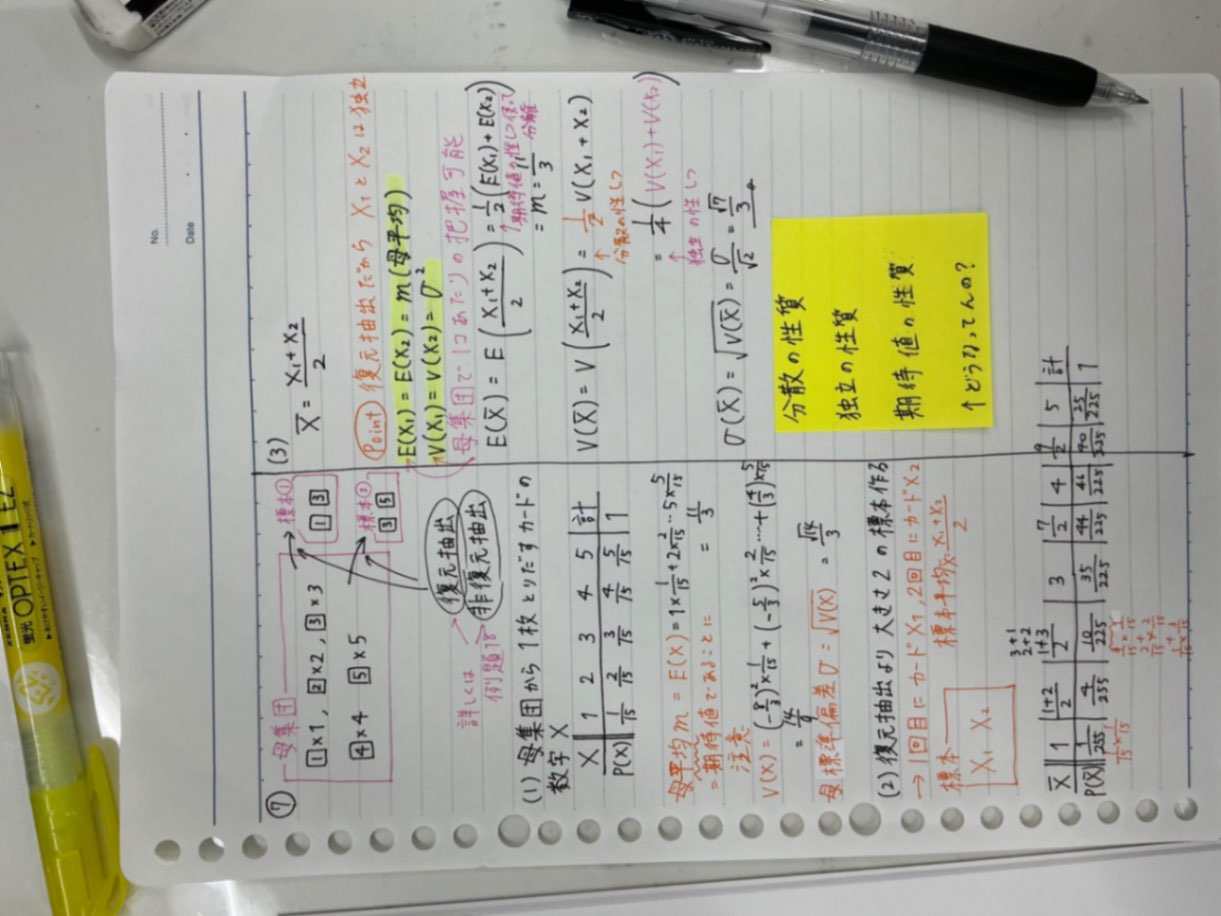 No.
Date
⑦
母集団
1×1, 2×2, 3×3
4×4 5×5
標本①
1 3
標本②
3 5
復元抽出
非復元抽出
詳しくは
例題78
(1) 母集団から1枚とりだすカードの
数字X
X 1 2 3 4 5 計
P(X) 1/15 2/15 3/15 4/15 5/15 1
母平均 m = E(X) = 1×1/15+2×2/15…5×5/15
=期待値であることに = 11/3
注意
V(X) = (-8/3)²×1/15+(-5/3)²×2/15…+(4/3)²×5/15
= 14/9
母標準偏差 σ = √V(X) = √14/3
(2) 復元抽出より大きさ2の標本作る
→1回目にカードX1, 2回目にカードX2
標本 標本平均X̄ = X1+X2/2
X1 X2
3+1
2+2
1+3
X̄ 1 1+2/2 2 3 7/2 4 9/2 5 計
P(X̄) 1/255 4/255 10/225 35/225 44/225 41/225 40/225 25/225 1
1/15×1/15
(3)
X̄ = X1+X2/2
Point 復元抽出だから X1とX2は独立
E(X1) = E(X2) = m (母平均)
V(X1) = V(X2) = σ²
母集団で1コあたりの把握可能
E(X̄) = E(X1+X2/2) = 1/2(E(X1)+E(X2))
↑期待値の性しつ使って分離
= m = 11/3
V(X̄) = V(X1+X2/2) = 1/2 V(X1+X2)
↑分散の性しつ
= 1/4(V(X1)+V(X2))
↑独立の性しつ
σ(X̄) = √V(X̄) = σ/√2 = √7/3
分散の性質
独立の性質
期待値の性質
↑どうなってんの?
蛍光 OPTEX 1 EZ